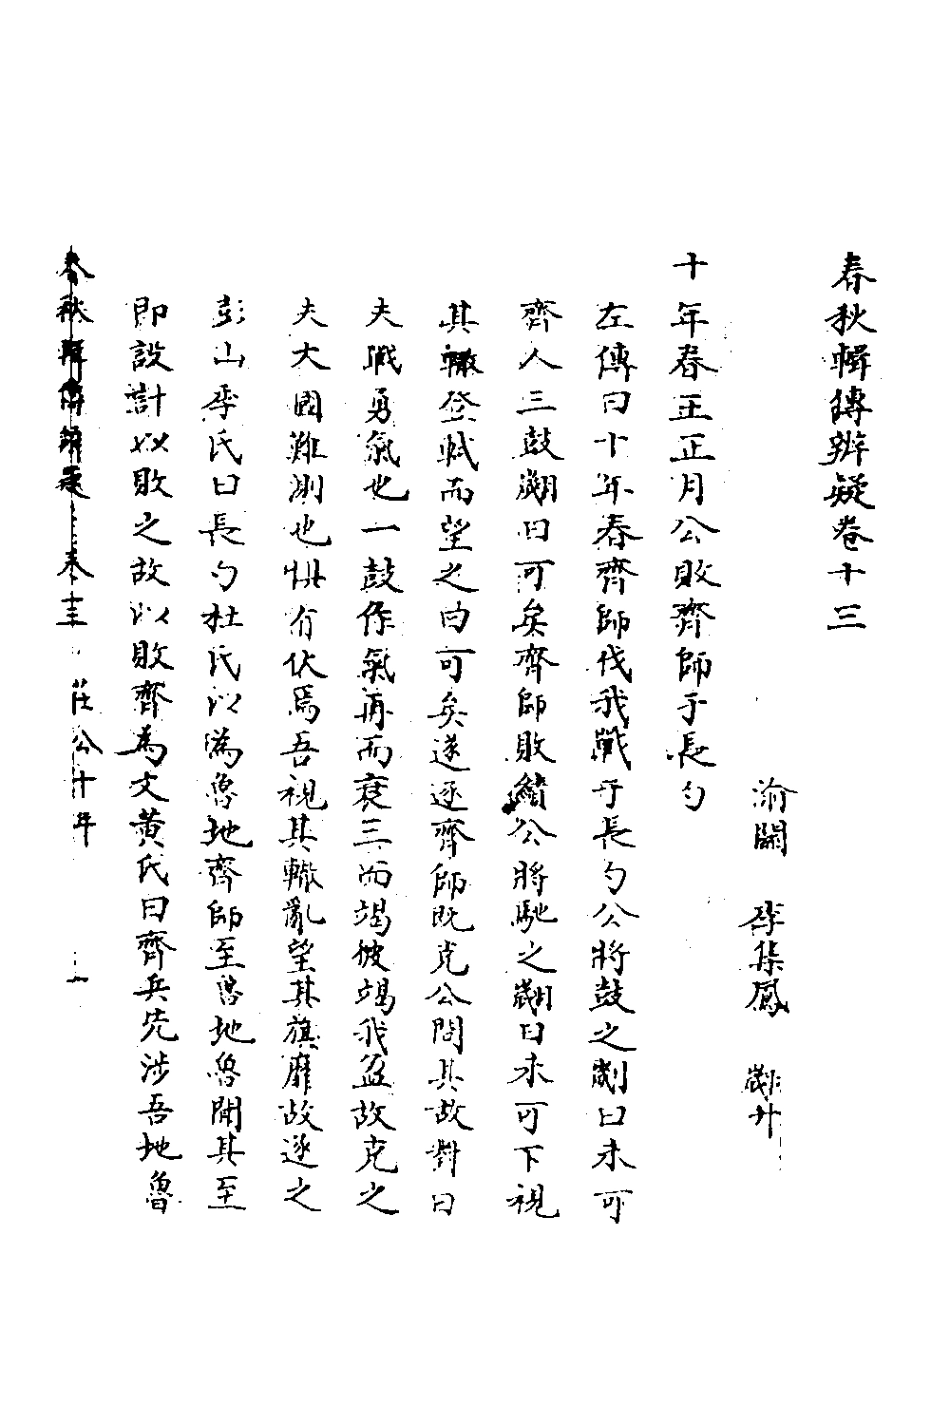 春秋輯傳辨疑卷十三
渝關 李集鳳 翽升
十年春王正月公敗齊師于長勺
左傳曰十年春齊師伐我戰于長勺公將鼓之劌曰未可
齊人三鼓劌曰可矣齊師敗績公將馳之劌曰未可下視
其轍登軾而望之曰可矣遂逐齊師既克公問其故對曰
夫戰勇氣也一鼓作氣再而衰三而竭彼竭我盈故克之
夫大國難測也惧有伏焉吾視其轍亂望其旗靡故逐之
彭山季氏曰長勺杜氏以為魯地齊師至魯地魯聞其至
即設計以敗之故以敗齊為文黃氏曰齊兵先涉吾地魯
春秋輯傳辨疑 卷十三 莊公十年 一